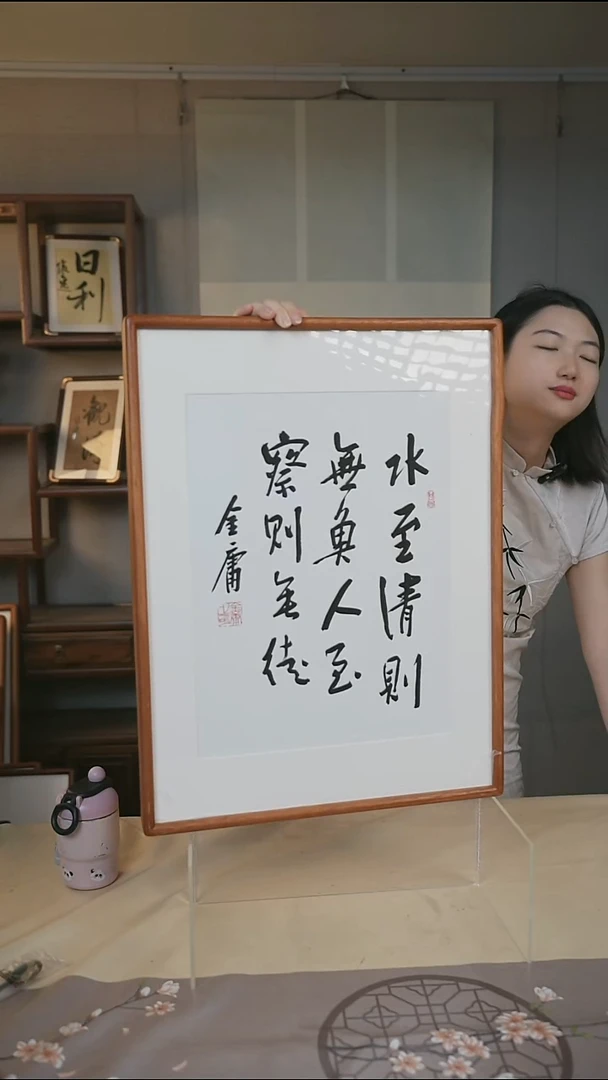 水至清則
無魚人至
察則無徒
金庸
日利